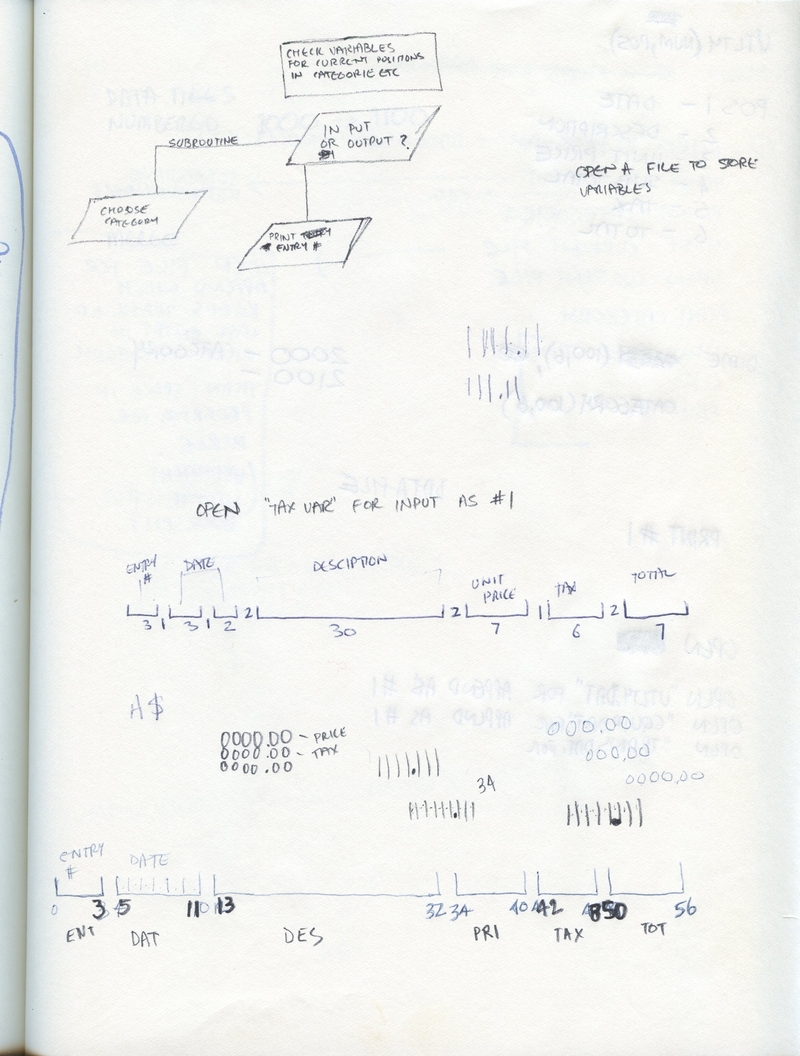 CHECK VARIABLES
FOR CURRENT POSITIONS
IN CATEGORIE ETC
IN PUT
OR OUTPUT ?
SUBROUTINE
OPEN A FILE TO STORE
VARIABLES
CHOOSE
CATEGORY
PRINT
ENTRY #
OPEN "TAX VAR" FOR INPUT AS #1
ENTRY
#
DATE
DESCIPTION
UNIT
PRICE
TAX
TOTAL
3 1 3 1 2 2 30 2 7 1 6 2 7
A$
0000.00 - PRICE
0000.00 - TAX
0000.00
000.00
000.00
0000.00
34
ENTRY
#
DATE
0 3 5 11 13 32 34 40 42 50 56
ENT DAT DES PRI TAX TOT